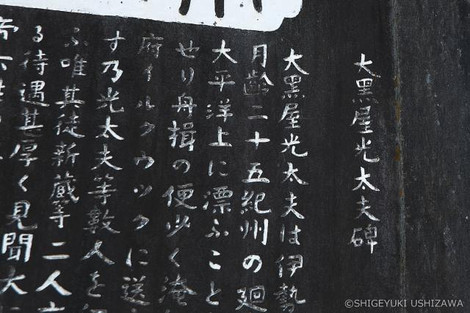 大黒屋光太夫碑
大黒屋光太夫は伊勢
月齢二十五紀州の廻
大平洋上に漂ふこと
せり舟揖の便少く淹
府イルクウツクに送
す乃光太夫等数人を
ふ唯其徒新蔵等二人
る待遇甚厚く見聞大
©SHIGEYUKI USHIZAWA